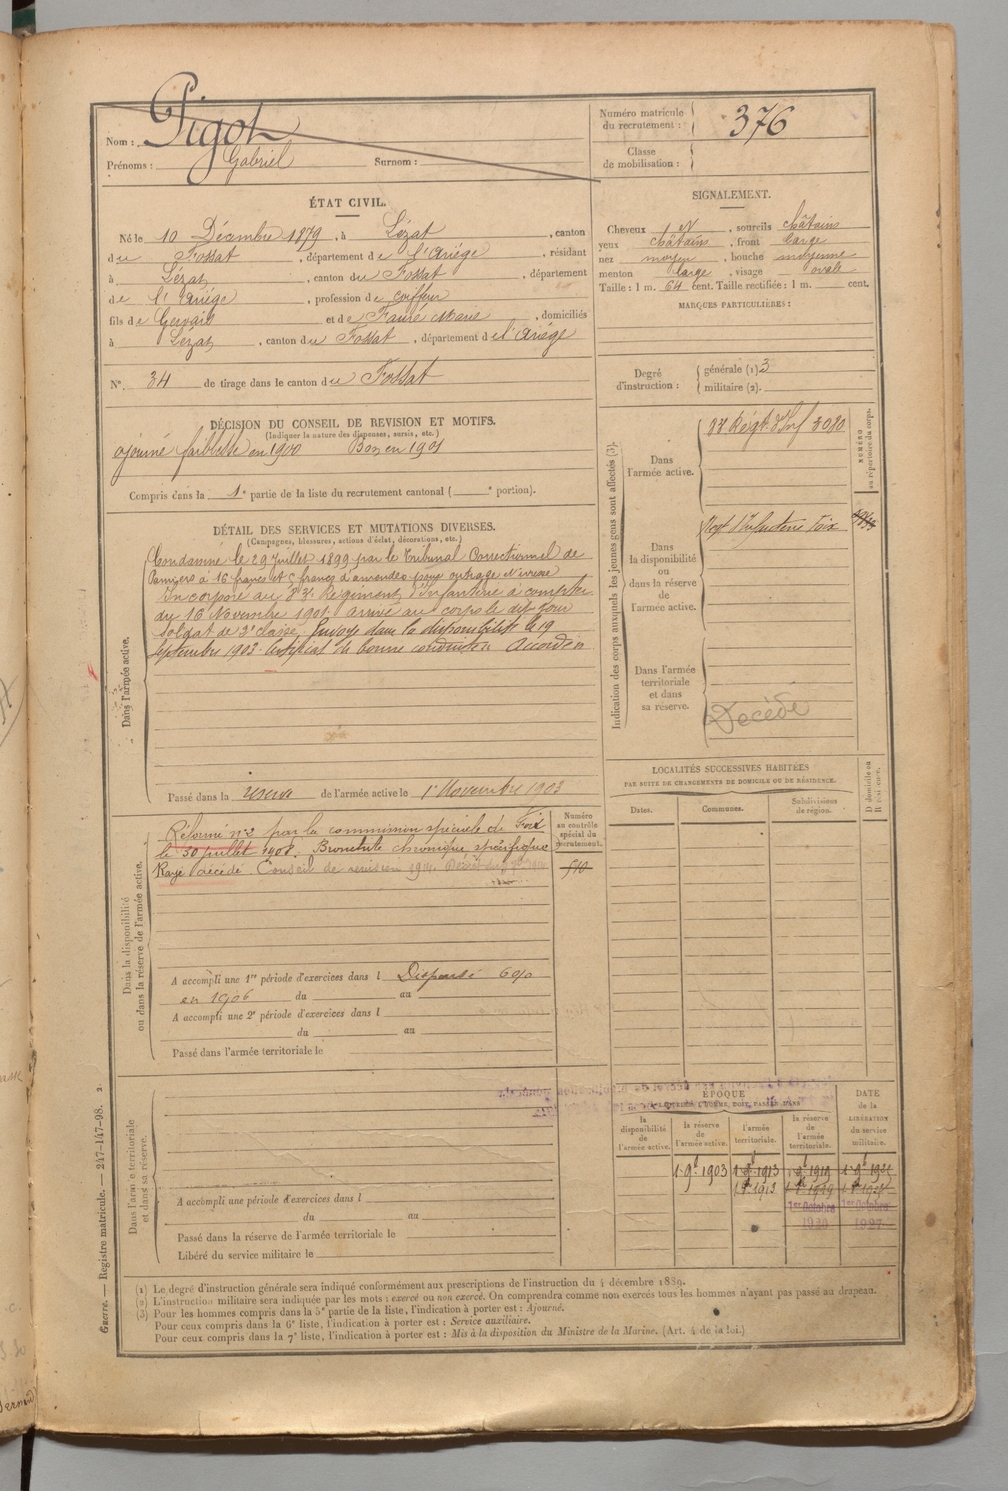 Nom : Pigot
Prénoms : Gabriel Surnom :
Numéro matricule du recrutement : 376
Classe de mobilisation :
ÉTAT CIVIL.
Né le 10 Décembre 1879, à Lézat, canton
du Fossat, département de l'Ariége, résidant
à Lézat, canton du Fossat, département
de l'Ariége, profession de coiffeur
fils de Gervais et de Faure Marie, domiciliés
à Lézat, canton du Fossat, département de l'Ariége
N° 34 de tirage dans le canton du Fossat
SIGNALEMENT.
Cheveux et, sourcils châtains
yeux châtains, front large
nez moyen, bouche moyenne
menton large, visage ovale
Taille : 1 m. 64 cent. Taille rectifiée : 1 m. cent.
MARQUES PARTICULIÈRES :
Degré d'instruction : générale (1) 3
militaire (2).
DÉCISION DU CONSEIL DE REVISION ET MOTIFS.
(Indiquer la nature des dispenses, sursis, etc.)
ajourné faiblesse en 1900 Bon en 1901
Compris dans la 1e partie de la liste du recrutement cantonal ( e portion).
DÉTAIL DES SERVICES ET MUTATIONS DIVERSES.
(Campagnes, blessures, actions d'éclat, décorations, etc.)
Dans l'armée active.
Condamné le 29 Juillet 1899 par le Tribunal Correctionnel de
Pamiers à 16 francs et 5 francs d'amendes pour outrage et ivresse
Incorporé au Régiment d'Infanterie à compter
du 16 Novembre 1901 arrivé au corps le dit jour
soldat de 2e classe. Envoyé dans la disponibilité le 19
Septembre 1903. Certificat de bonne conduite Accordé
Passé dans la réserve de l'armée active le 1 Novembre 1903
Indication des corps auxquels les jeunes gens sont affectés (3).
NUMÉRO au répertoire du corps.
Dans l'armée active.
Régt d'Inf 3080
Dans la disponibilité ou dans la réserve de l'armée active.
Regt d'Infanterie Foix
Dans l'armée territoriale et dans sa réserve.
Décédé
LOCALITÉS SUCCESSIVES HABITÉES
PAR SUITE DE CHANGEMENTS DE DOMICILE OU DE RÉSIDENCE.
Dates. Communes. Subdivisions de région. D domicile ou R résidence.
Dans la disponibilité ou dans la réserve de l'armée active.
Numéro au contrôle spécial du recrutement.
Réformé n°2 par la commission spéciale de Foix
le 30 juillet 1908. Bronchite chronique spécifique
Rayé décédé Conseil de revision
A accompli une 1re période d'exercices dans l Dispensé
en 1906 du au
A accompli une 2e période d'exercices dans l
du au
Passé dans l'armée territoriale le
Dans l'armée territoriale et dans sa réserve.
A accompli une période d'exercices dans l
du au
Passé dans la réserve de l'armée territoriale le
Libéré du service militaire le
ÉPOQUE
la disponibilité de l'armée active.
la réserve de l'armée active.
l'armée territoriale.
la réserve de l'armée territoriale.
DATE de la LIBÉRATION du service militaire.
1 9bre 1903
1 9bre 1913
1 9bre 1919
1er Octobre
1er Octobre
1927
Guerre. — Registre matricule. — 247-147-98. 2.
(1) Le degré d'instruction générale sera indiqué conformément aux prescriptions de l'instruction du 4 décembre 1889.
(2) L'instruction militaire sera indiquée par les mots : exercé ou non exercé. On comprendra comme non exercés tous les hommes n'ayant pas passé au drapeau.
(3) Pour les hommes compris dans la 5e partie de la liste, l'indication à porter est : Ajourné.
Pour ceux compris dans la 6e liste, l'indication à porter est : Service auxiliaire.
Pour ceux compris dans la 7e liste, l'indication à porter est : Mis à la disposition du Ministre de la Marine. (Art. 4 de la loi.)